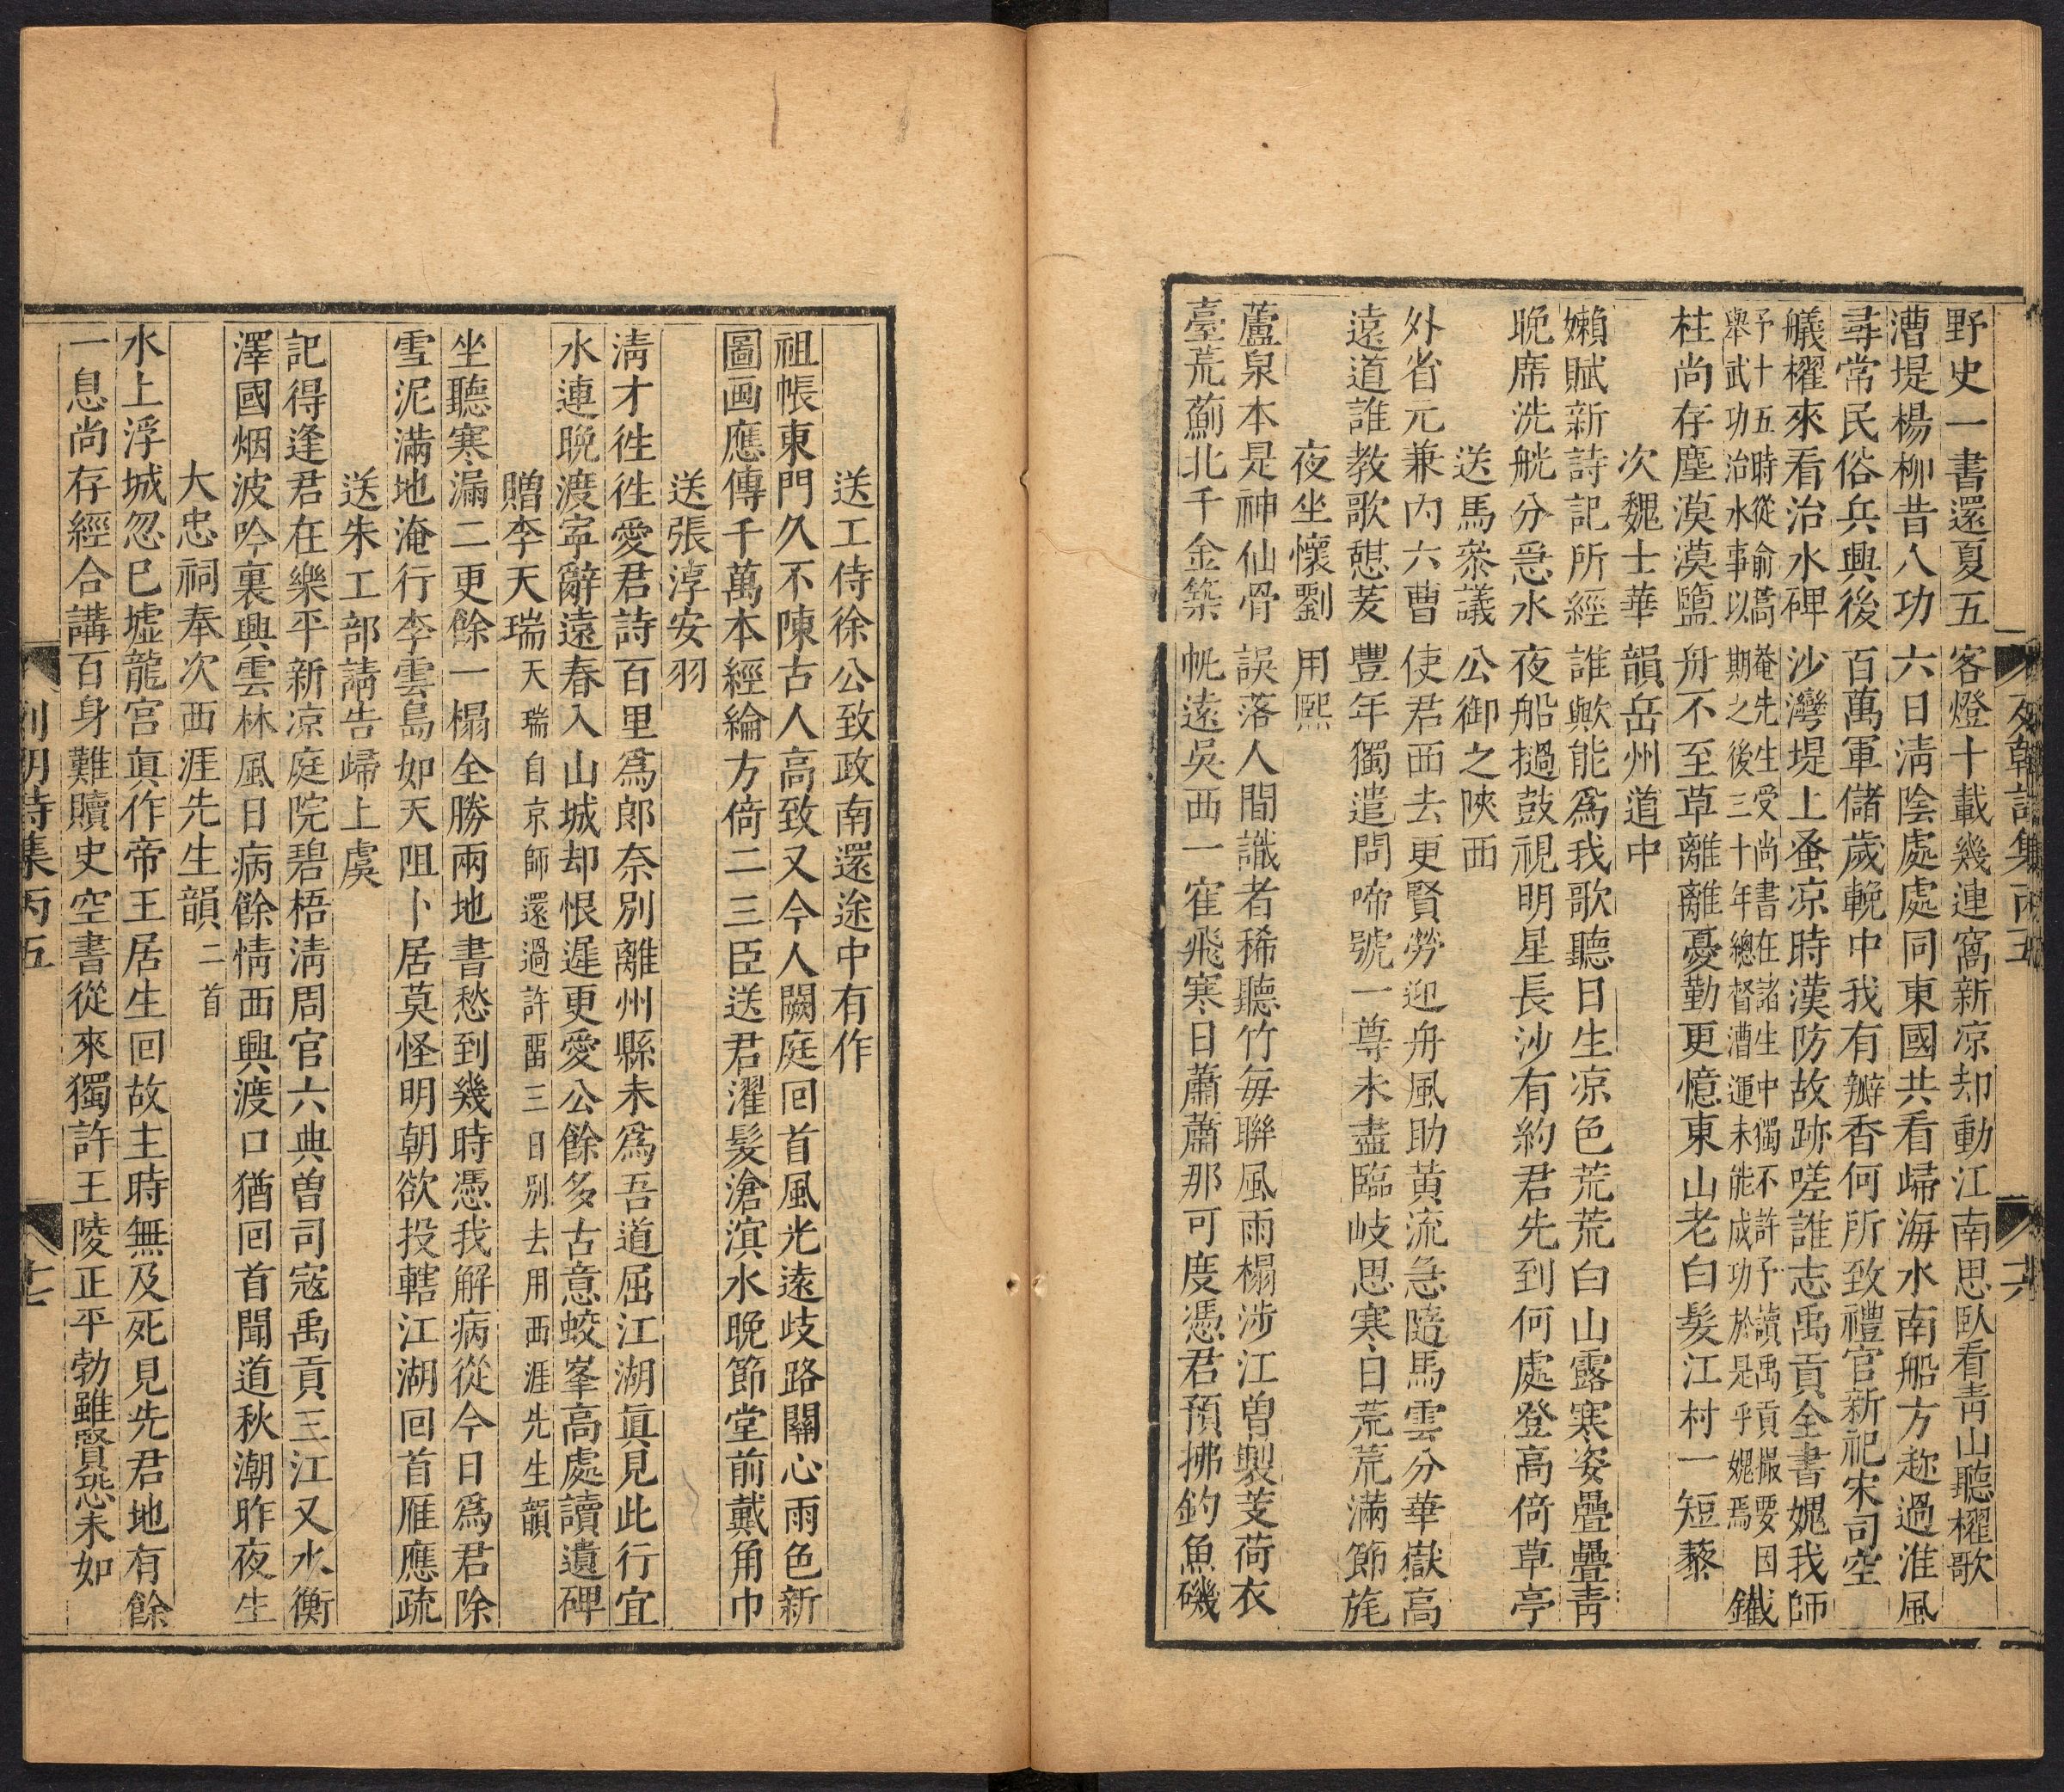 野史一書還夏五客燈十載幾連窩新凉却動江南思臥看靑山聽櫂歌
漕堤楊柳昔人功六日淸陰處處同東國共看歸海水南船方趂過淮風
尋常民俗兵興後百萬軍儲歲輓中我有瓣香何所致禮官新祀宋司空
艤櫂來看治水碑沙灣堤上蚤凉時漢防故跡嗟誰志禹貢全書媿我師
予十五時從俞菴先生受尚書在諸生中獨不許予讀禹貢嚴要因
舉武功治水事以期之後三十年總督漕運未能成功於是乎媿焉
鐵
柱尚存塵漠漠鹽舟不至草離離憂勤更憶東山老白髮江村一短藜
次魏士華韻岳州道中
嬾賦新詩記所經誰歟能爲我歌聽日生凉色荒荒白山露寒姿疊疊靑
晚席洗觥分惡水夜船撾鼓視明星長沙有約君先到何處登高倚草亭
送馬叅議公御之陝西
外省元兼內六曹使君西去更賢勞迎舟風助黄流急隨馬雲分華嶽高
遠道誰教歌憇茇豐年獨遣問啼號一尊未盡臨岐思寒日荒荒滿節旄
夜坐懷劉用熙
蘆泉本是神仙骨誤落人間識者稀聽竹每聨風雨榻涉江曽製芰荷衣
臺荒薊北千金築帆遠吳西一隺飛寒日蕭蕭那可度憑君預拂釣魚磯
列朝詩集丙五
十六
送工侍徐公致政南還途中有作
祖帳東門久不陳古人高致又今人闕庭回首風光遠歧路關心雨色新
圖画應傳千萬本經綸方倚二三臣送君濯髮滄溟水晚節堂前戴角巾
送張淳安羽
淸才徃徃愛君詩百里爲郞奈別離州縣未爲吾道屈江湖眞見此行宜
水連晩渡寕辭遠春入山城却恨遲更愛公餘多古意蛟峯高處讀遺碑
贈李天瑞天瑞自京師還過許畱三日別去用西涯先生韻
坐聽寒漏二更餘一榻全勝兩地書愁到幾時憑我解病從今日爲君除
雪泥滿地淹行李雲島如天阻卜居莫怪明朝欲投轄江湖回首雁應疏
送朱工部請告歸上虞
記得逢君在樂平新凉庭院碧梧淸周官六典曽司寇禹貢三江又水衡
澤國烟波吟裏興雲林風日病餘情西興渡口猶回首聞道秋潮昨夜生
大忠祠奉次西涯先生韻二首
水上浮城忽巳墟龍宫眞作帝王居生回故主時無及死見先君地有餘
一息尚存經合講百身難贖史空書從來獨許王陵正平勃雖賢恐未如
列朝詩集丙五
十七